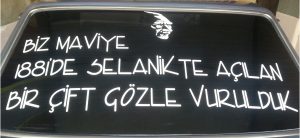 BİZ MAVİYE
1881'DE SELANİKTE AÇILAN
BİR ÇİFT GÖZLE VURULDUK